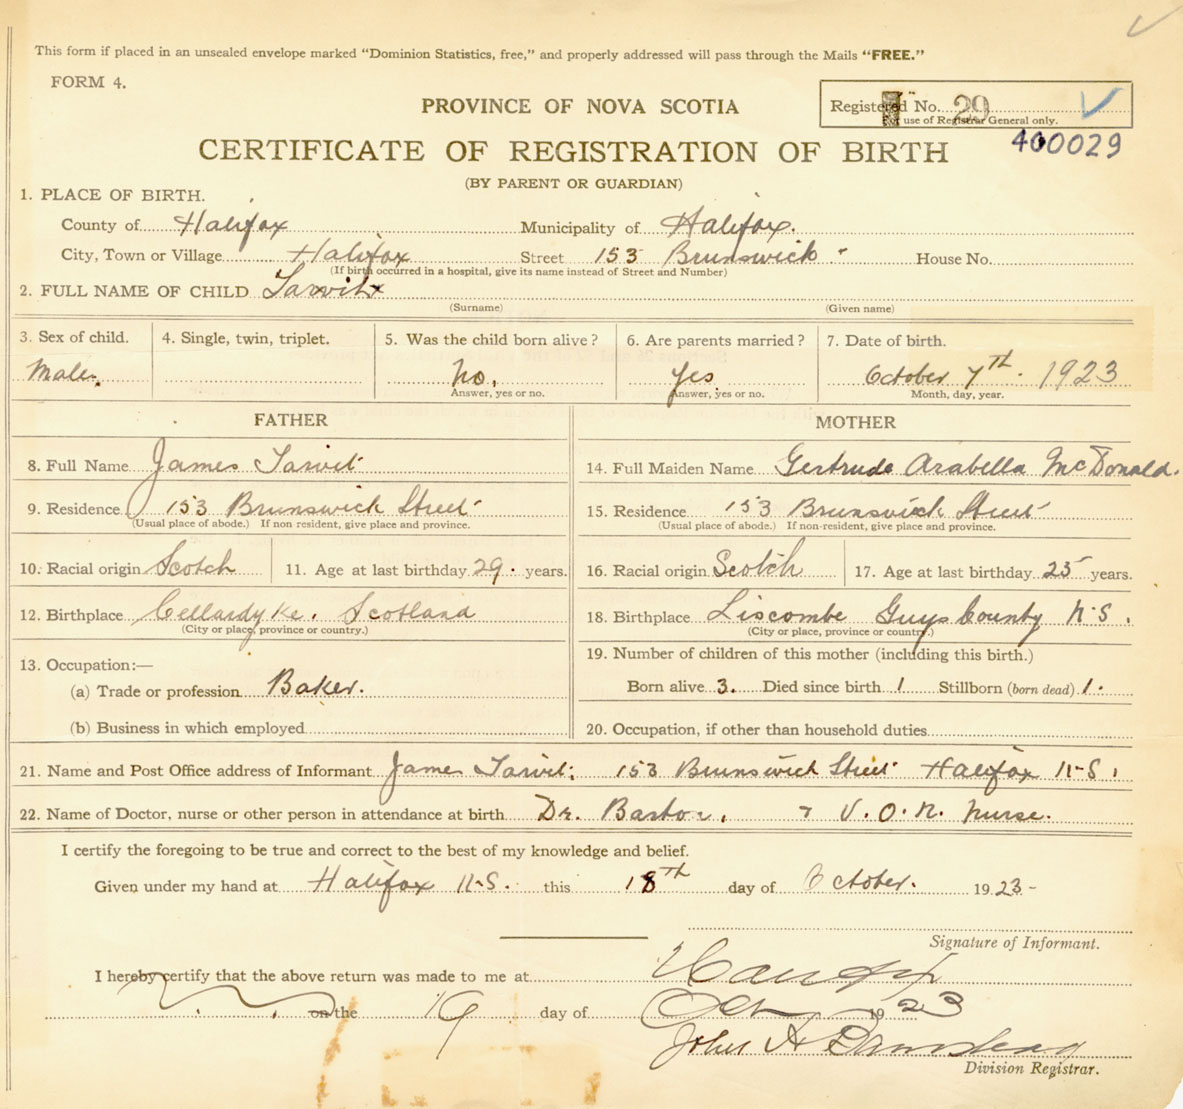 This form if placed in an unsealed envelope marked "Dominion Statistics, free," and properly addressed will pass through the Mails "FREE."
FORM 4.
PROVINCE OF NOVA SCOTIA
Registered No. 29
For use of Registrar General only.
400029
CERTIFICATE OF REGISTRATION OF BIRTH
(BY PARENT OR GUARDIAN)
1. PLACE OF BIRTH.
County of Halifax Municipality of Halifax.
City, Town or Village Halifax Street 153 Brunswick House No.
(If birth occurred in a hospital, give its name instead of Street and Number)
2. FULL NAME OF CHILD Tarvit
(Surname) (Given name)
3. Sex of child. 4. Single, twin, triplet. 5. Was the child born alive? 6. Are parents married? 7. Date of birth.
Male. No. Yes October 7th. 1923
Answer, yes or no. Answer, yes or no. Month, day, year.
FATHER MOTHER
8. Full Name James Tarvit 14. Full Maiden Name Gertrude Arabella McDonald.
9. Residence 153 Brunswick Street 15. Residence 153 Brunswick Street
(Usual place of abode.) If non resident, give place and province. (Usual place of abode.) If non-resident, give place and province.
10. Racial origin Scotch 11. Age at last birthday 29. years. 16. Racial origin Scotch 17. Age at last birthday 25 years.
12. Birthplace Cellardyke. Scotland 18. Birthplace Liscombe Guys County N.S.
(City or place, province or country.) (City or place, province or country.)
13. Occupation:— 19. Number of children of this mother (including this birth.)
(a) Trade or profession Baker. Born alive 3. Died since birth 1 Stillborn (born dead) 1.
(b) Business in which employed 20. Occupation, if other than household duties
21. Name and Post Office address of Informant James Tarvit. 153 Brunswick Street Halifax N.S.
22. Name of Doctor, nurse or other person in attendance at birth Dr. V.O.N. Nurse.
I certify the foregoing to be true and correct to the best of my knowledge and belief.
Given under my hand at Halifax N.S. this 18th day of October. 1923-
Signature of Informant.
I hereby certify that the above return was made to me at Halifax
on the 19 day of Oct 1923
John A
Division Registrar.